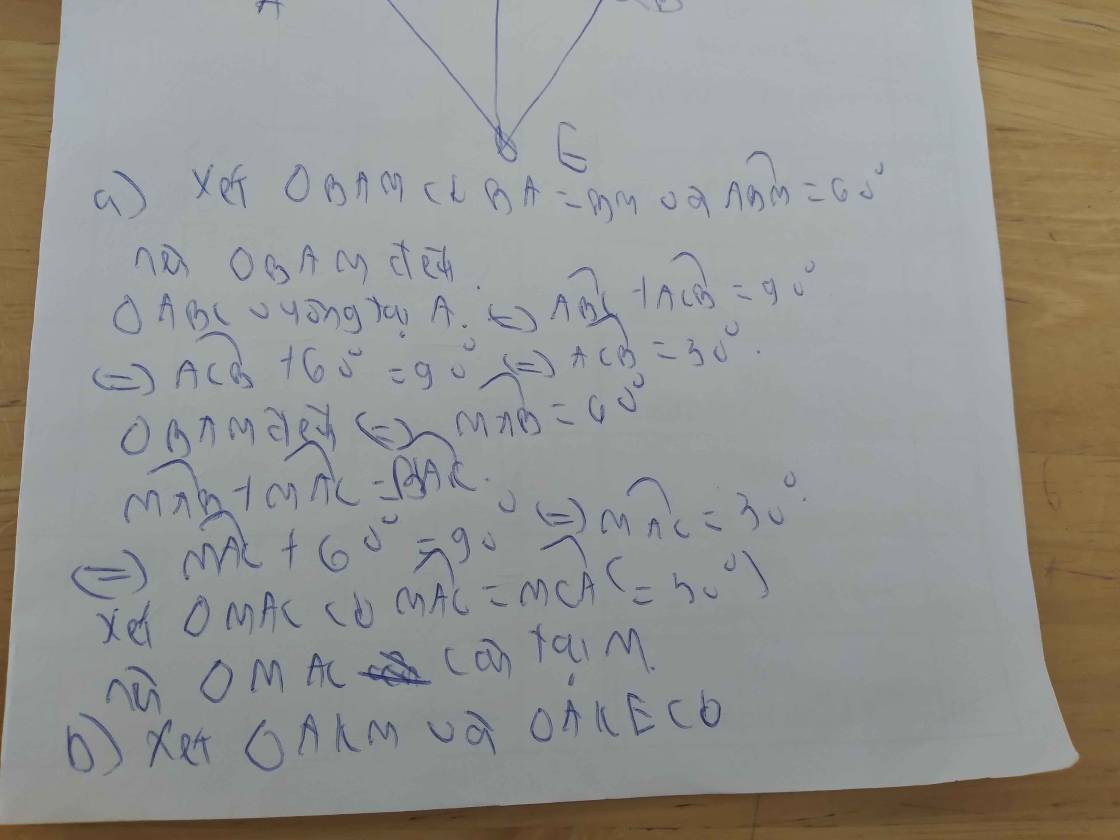 A B
E
a) Xét △BAM có BA = BM và ABM̂ = 60°
nên △BAM đều.
△ABC vuông tại A. (=) ABĈ + ACB̂ = 90°
(=) ACB̂ + 60° = 90° (=) ACB̂ = 30°.
△BAM đều (=) MAB̂ = 60°
MAB̂ + MAĈ = BAĈ.
(=) MAĈ + 60° = 90° (=) MAĈ = 30°.
Xét △MAC có MAĈ = MCÂ (= 30°)
nên △MAC cân tại M.
b) Xét △AKM và △AKE có